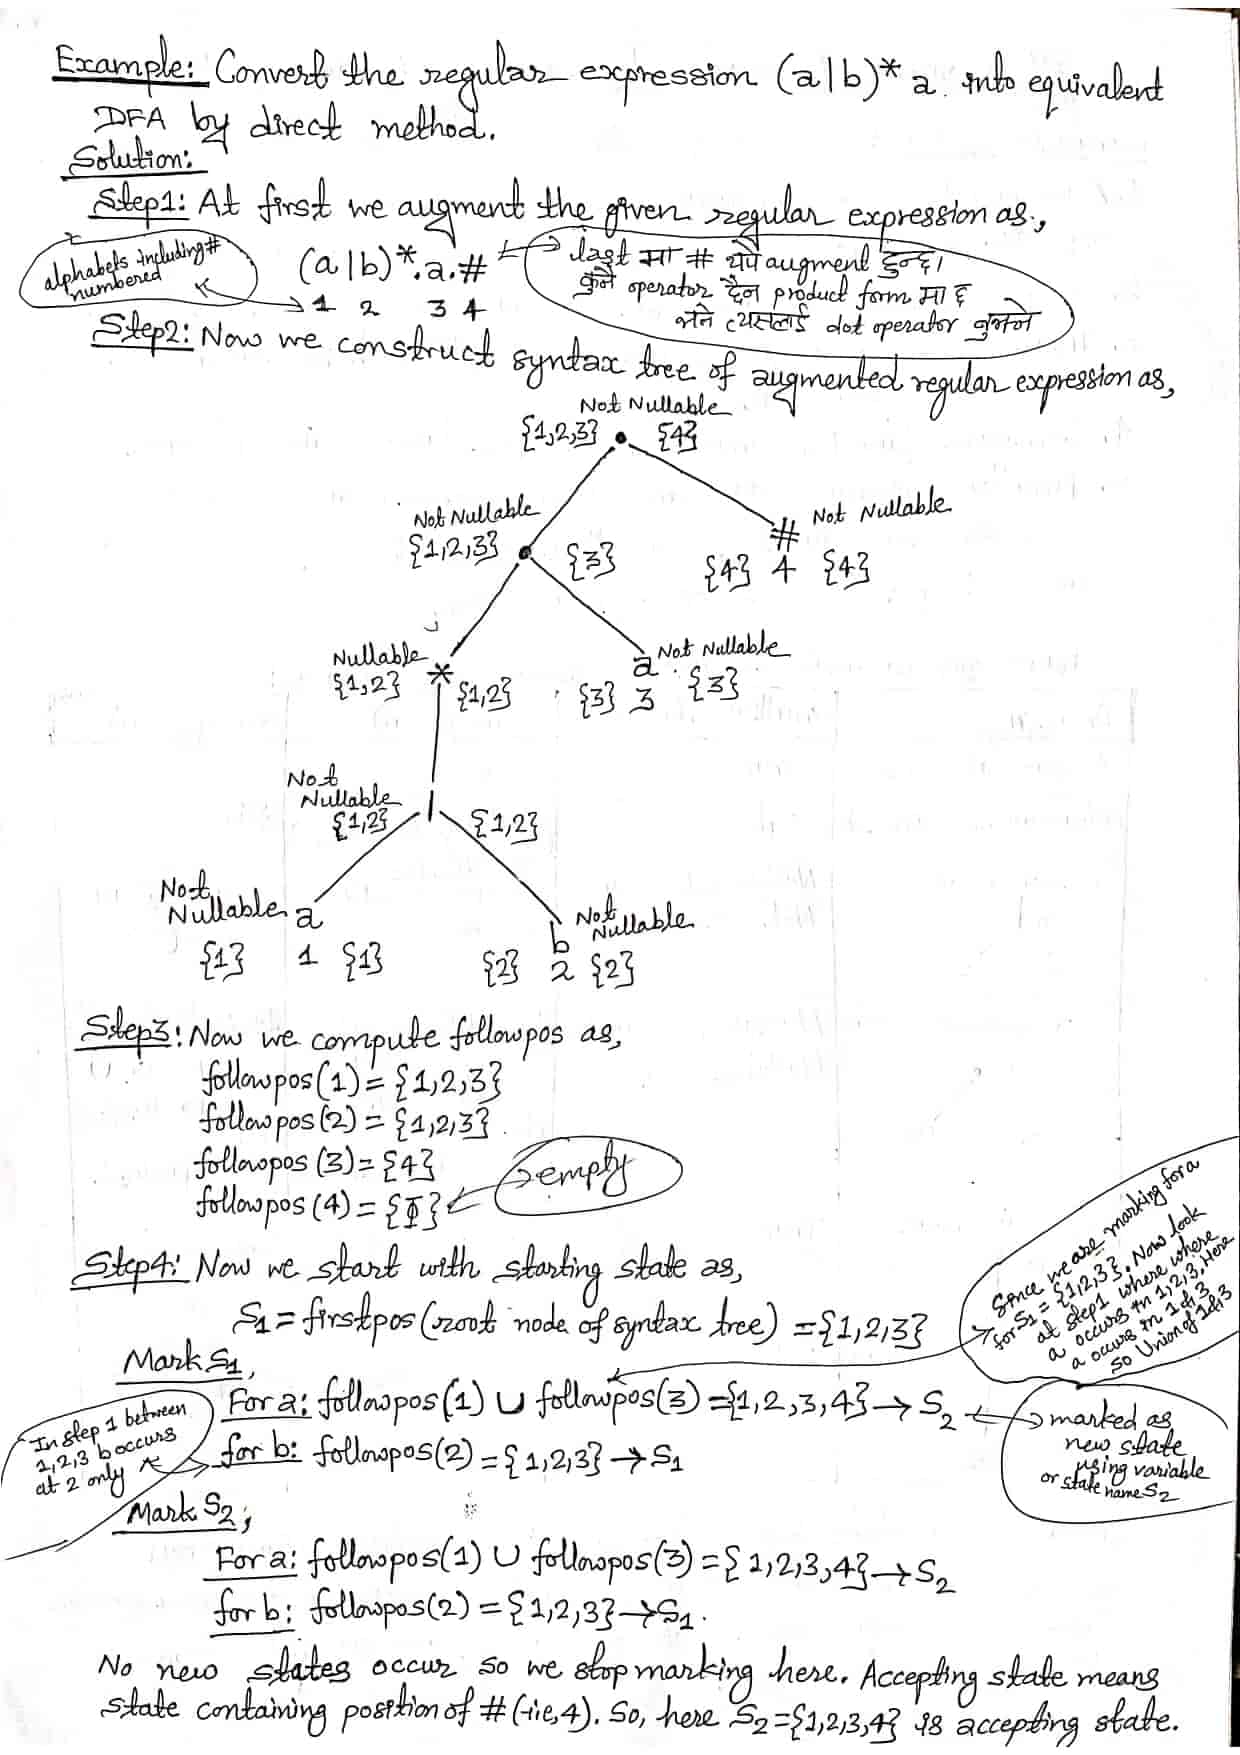 Example: Convert the regular expression (a|b)* a into equivalent
DFA by direct method.
Solution:
Step1: At first we augment the given regular expression as,
alphabets including #
numbered
(a|b)*.a.#
1 2 3 4
last मा # थपे augment हुन्छ।
कुनै operator छैन product form मा छ
भने त्यसलाई dot operator बुझ्ने
Step2: Now we construct syntax tree of augmented regular expression as,
Not Nullable
{1,2,3} • {4}
Not Nullable
{1,2,3} • {3}
# Not Nullable
{4} 4 {4}
Nullable
{1,2} * {1,2}
a Not Nullable
{3} 3 {3}
Not
Nullable
{1,2} | {1,2}
Not
Nullable a
{1} 1 {1}
Not
Nullable
b
{2} 2 {2}
Step3: Now we compute followpos as,
followpos(1) = {1,2,3}
followpos(2) = {1,2,3}
followpos(3) = {4}
followpos(4) = {Φ}
empty
Step4: Now we start with starting state as,
S1 = firstpos(root node of syntax tree) = {1,2,3}
Since we are marking for a
for S1 = {1,2,3}. Now look
at step1 where where
a occurs in 1,2,3, Here
a occurs in 1 & 3
so Union of 1 & 3
Mark S1,
For a: followpos(1) ∪ followpos(3) = {1,2,3,4} → S2
marked as
new state
using variable
or state name S2
for b: followpos(2) = {1,2,3} → S1
In step 1 between
1,2,3 b occurs
at 2 only
Mark S2;
For a: followpos(1) ∪ followpos(3) = {1,2,3,4} → S2
for b: followpos(2) = {1,2,3} → S1.
No new states occur so we stop marking here. Accepting state means
state containing position of # (i.e, 4). So, here S2 = {1,2,3,4} is accepting state.